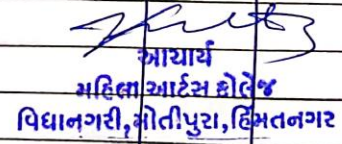 આચાર્ય
મહિલા આર્ટસ કોલેજ
વિધાનગરી, મોતીપુરા, હિંમતનગર